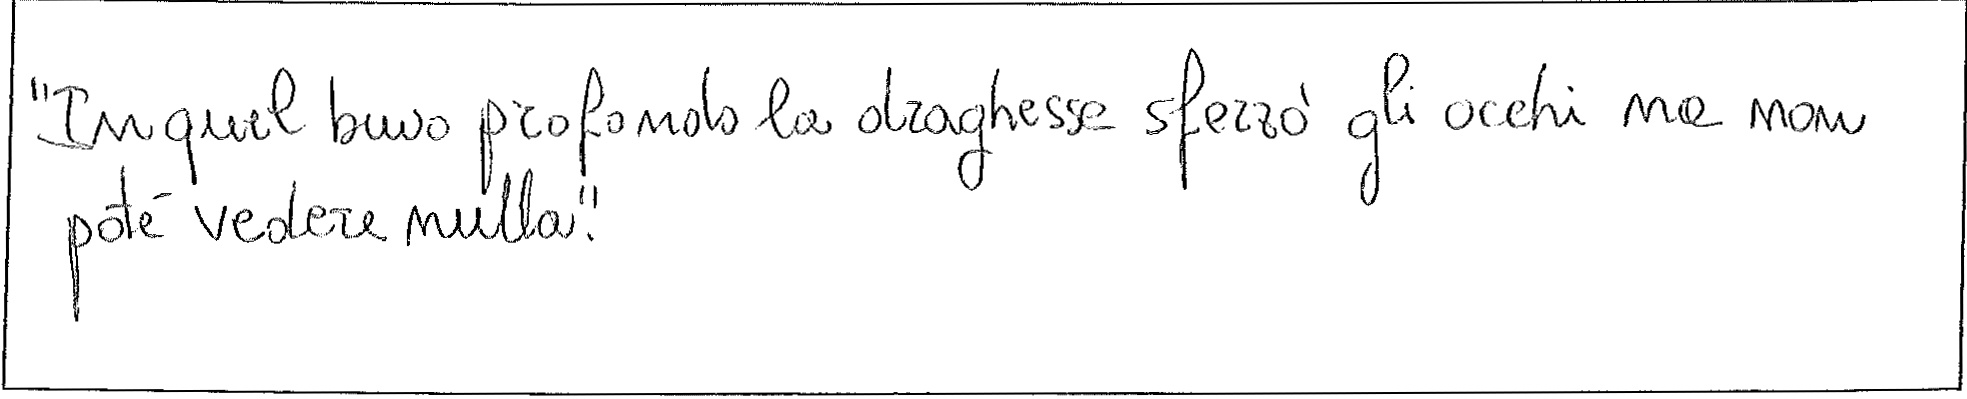 "In quel buio profondo la draghessa sferzò gli occhi ma non
poté vedere nulla".